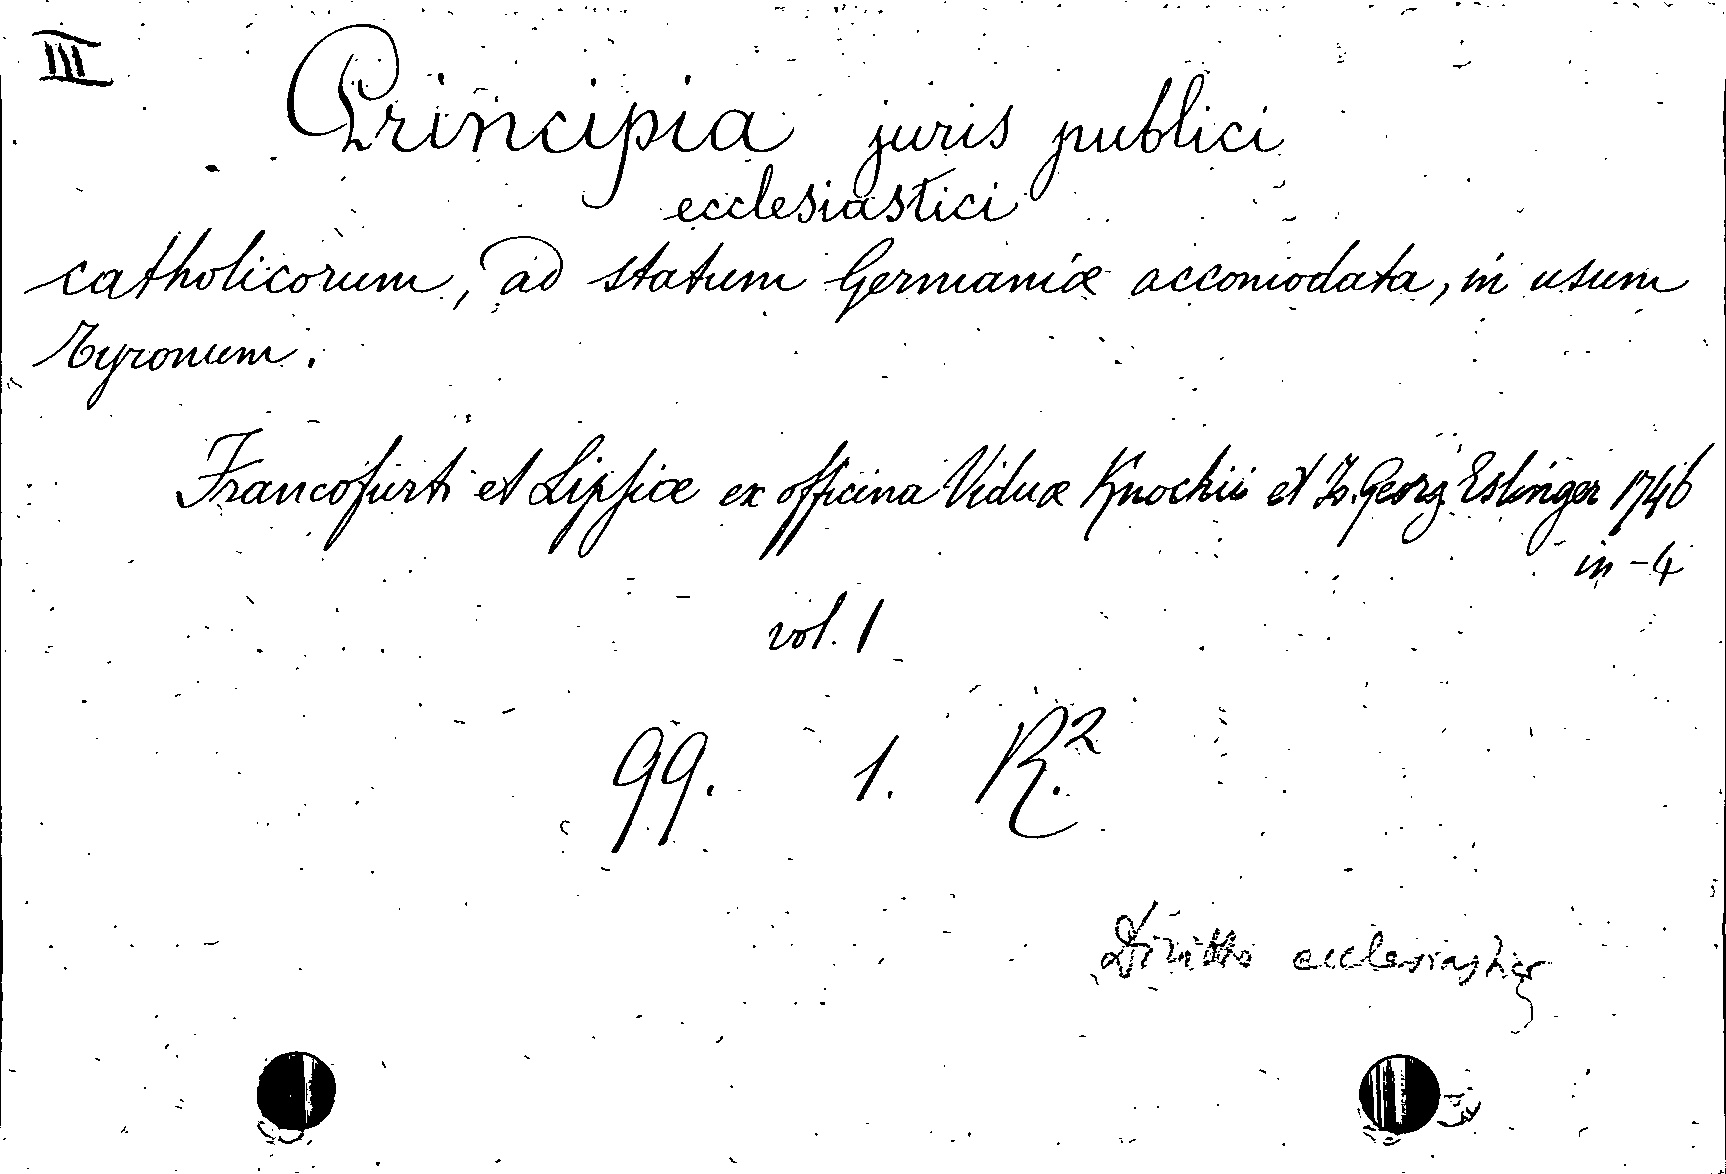 III
Principia juris publici
ecclesiastici
catholicorum, ad statum Germaniæ accomodata, in usum
Tyronum.
Francofurti et Lipsiæ ex officina Viduæ Knochii et Jo. Georg Eslinger 1746
in-4
vol. 1
99. 1. R.²
Diritto ecclesiastico